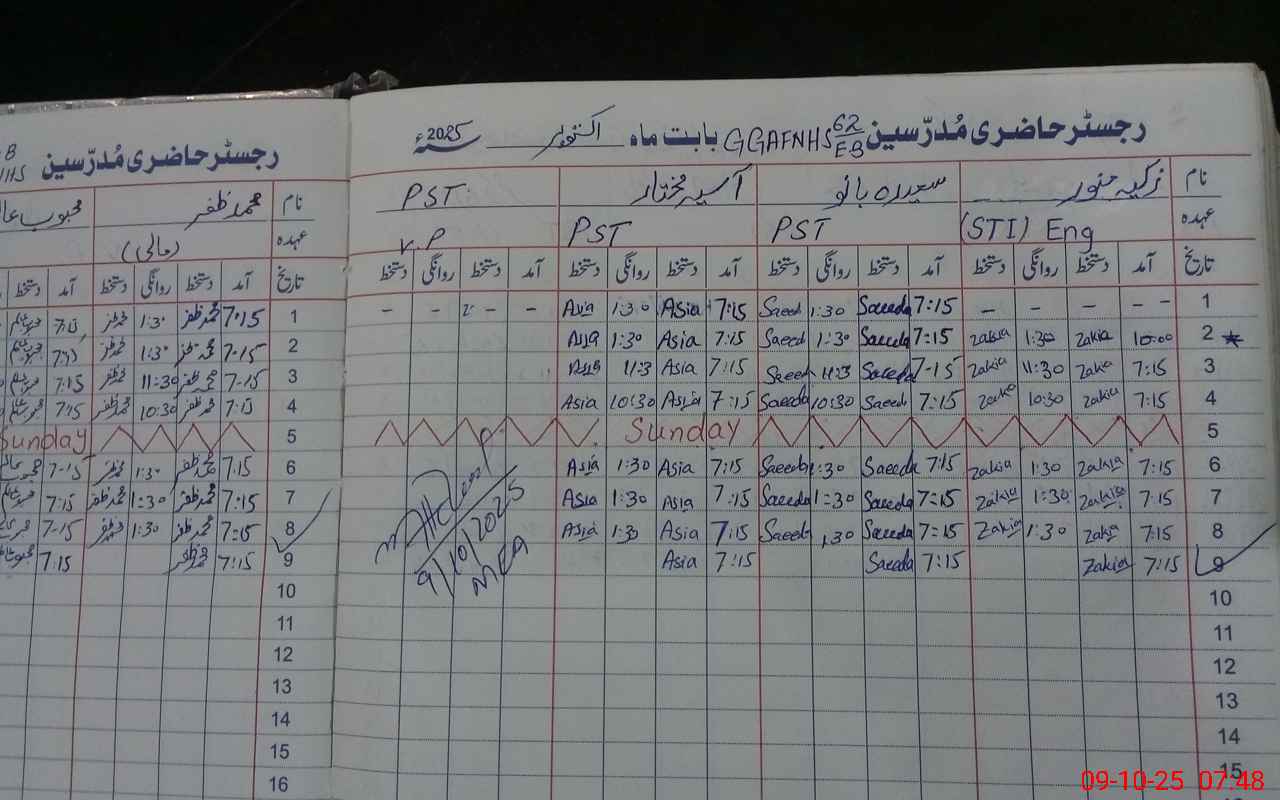 رجسٹر حاضری مُدرّسین GGAFNHS 62/EB بابت ماہ اکتوبر سنہ 2025ء
نام زکیہ منور سعیدہ بانو آسیہ مختار PST:
عہدہ (STI) Eng PST PST V.P
تاریخ آمد دستخط روانگی دستخط آمد دستخط روانگی دستخط آمد دستخط روانگی دستخط آمد دستخط روانگی دستخط
1 - - - - 7:15 Saeeda 1:30 Saeed 7:15 Asia 1:30 Asia - - -
2 10:00 Zakia 1:30 Zakia 7:15 Saeeda 1:30 Saeed 7:15 Asia 1:30 Asia
3 7:15 Zakia 11:30 Zakia 7-15 Saeeda 11:3 Saeed 7:15 Asia 11:3 Asia
4 7:15 Zakia 10:30 Zakia 7:15 Saeed 10:30 Saeeda 7:15 Asia 10:30 Asia
5 Sunday
6 7:15 Zakia 1:30 Zakia 7:15 Saeeda 1:30 Saeeda 7:15 Asia 1:30 Asia
7 7:15 Zakia 1:30 Zakia 7:15 Saeeda 1:30 Saeeda 7:15 Asia 1:30 Asia
8 7:15 Zakia 1:30 Zakia 7:15 Saeeda 1:30 Saeed 7:15 Asia 1:30 Asia
9 7:15 Zakia 7:15 Saeeda 7:15 Asia
9/10/2025
MEA
10
11
12
13
14
15
رجسٹر حاضری مُدرّسین
نام محمد ظفر محبوب
عہدہ (مالی)
تاریخ آمد دستخط روانگی دستخط آمد دستخط
1 7:15 محمد ظفر 1:30 محمد ظفر 7:15
2 7-15 محمد ظفر 1:30 محمد ظفر 7:15
3 7-15 محمد ظفر 11:30 محمد ظفر 7:15
4 7:15 محمد ظفر 10:30 محمد ظفر 7:15
5 Sunday
6 7:15 محمد ظفر 1:30 محمد ظفر 7-15
7 7:15 محمد ظفر 1:30 محمد ظفر 7:15
8 7:15 محمد ظفر 1:30 محمد ظفر 7-15
9 7:15 محمد ظفر 7:15
10
11
12
13
14
15
16
09-10-25 07:48